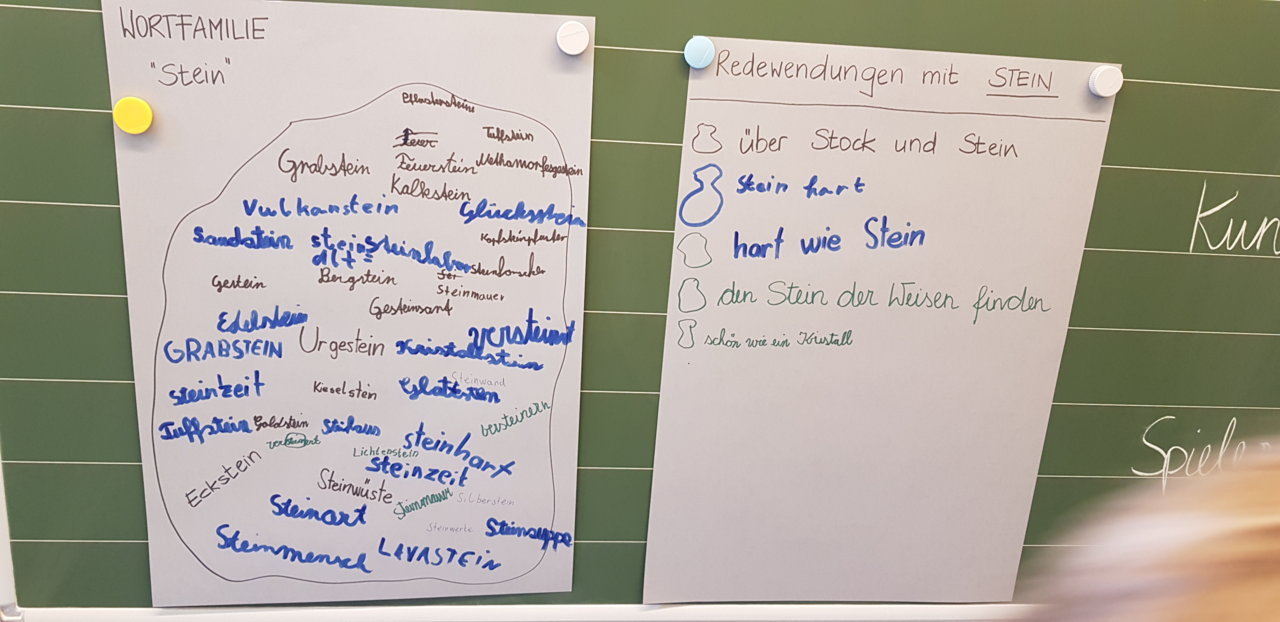 WORTFAMILIE
"Stein"
Tuffstein
Grabstein
Feuerstein
Kalkstein
Vulkanstein
Glücksstein
Sandstein
Bergstein
Gestein
Steinmauer
Gesteinsart
Edelstein
versteinert
GRABSTEIN
Urgestein
Kristallstein
Steinwand
steinzeit
Kieselstein
versteinern
Tuffstein
Goldstein
steinhart
Lichtenstein
steinzeit
Eckstein
Steinwüste
Steinmauer
Silberstein
Steinart
Steinwerke
Steinsuppe
Steinmensch
LAVASTEiN
Redewendungen mit STEIN
über Stock und Stein
Stein hart
hart wie Stein
den Stein der Weisen finden
schön wie ein Kristall
Kun
Spiele